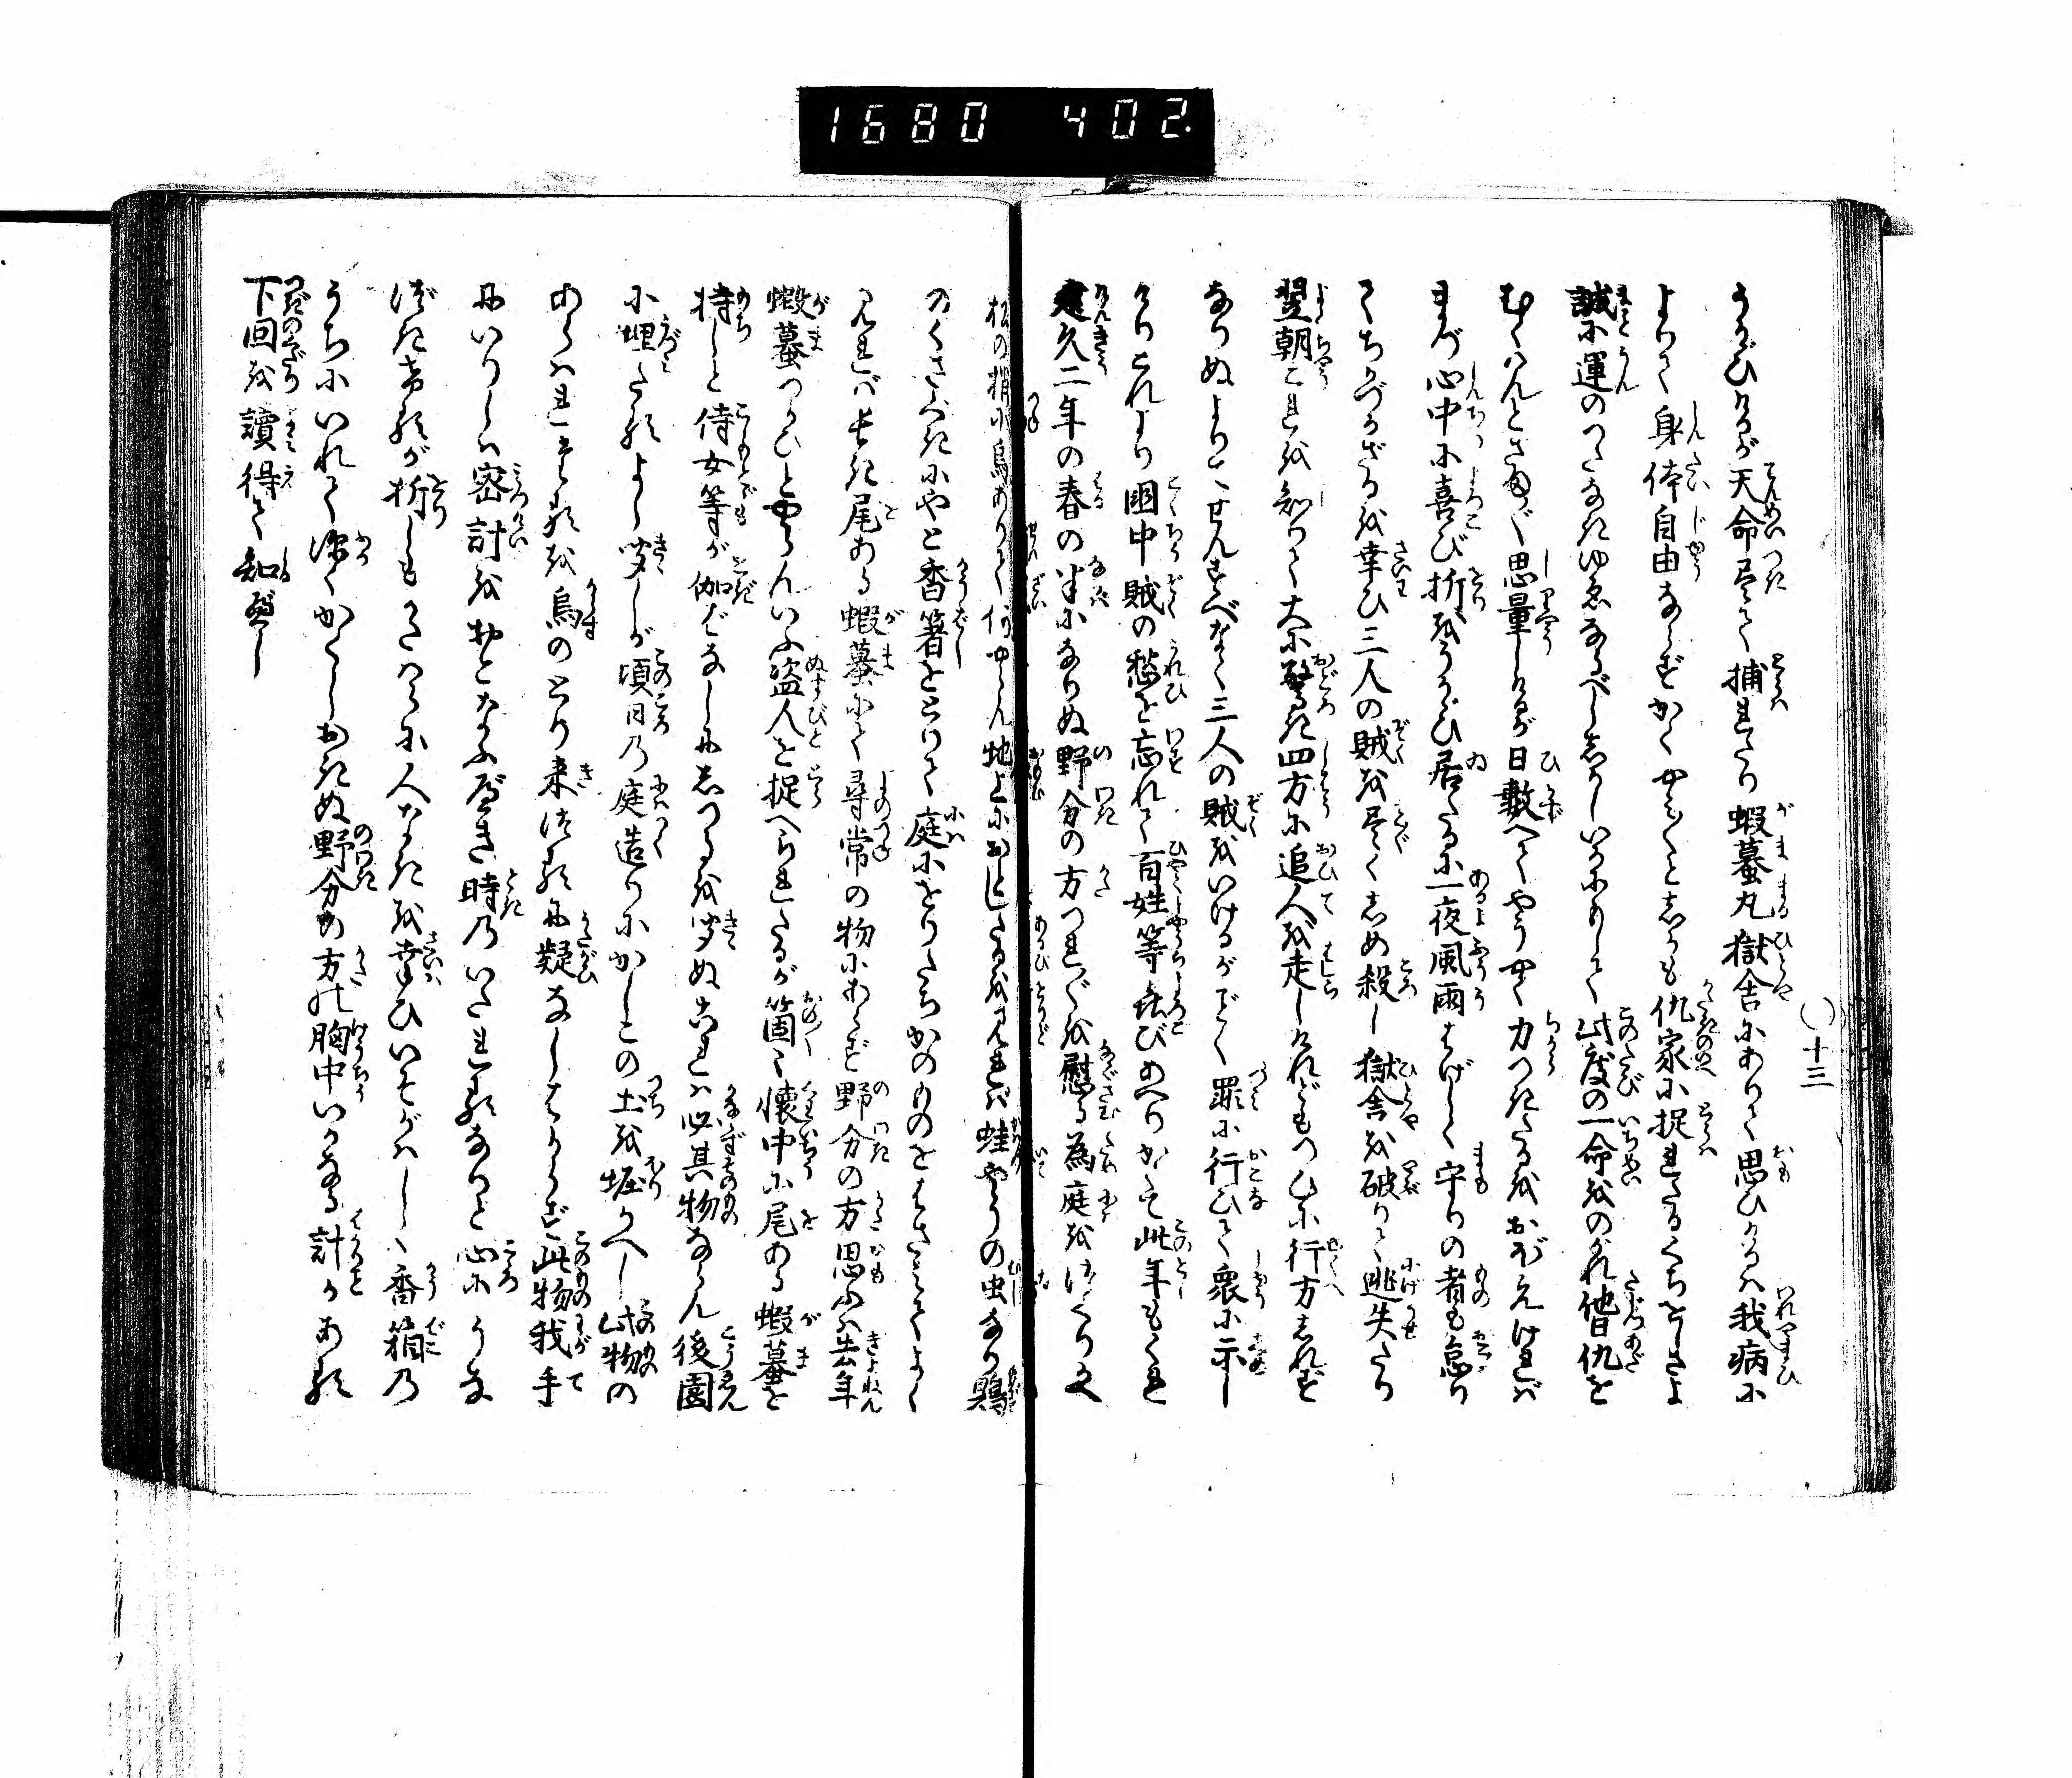 1680 402.
十三
うかゞひけるが天命尽て捕れたり蝦蟇丸獄舎にありて思ひけるハ我病に
よりて身体自由ならずかくやみ〳〵と仇家に捉れたるくちをしさよ
誠に運のつたなきゆゑなるべし いかにもして此度の一命をのがれ仇を
むくハんとさま〴〵思量しけるが日数へてやうやく力つきたるをおぼえければ
まづ心中に喜び折をうかゞひ居たるに一夜風雨はげしく守りの者も怠り
てちかづかざるを幸ひ三人の賊を尽くしめ殺し獄舎を破りて逃失たり
翌朝これを知りて大に驚き四方に追人を走しけれどもつひに行方しれず
なりぬよりてせんすべなく三人の賊をいけるがごとく罪に行ひて衆に示し
けりこれより国中賊の愁を忘れて百姓等喜びあへりかくて此年もくれ
建久二年の春の半になりぬ野分の方つれ〴〵を慰る為庭をつくりかへ
松の梢に烏ありて何やらん地上におとしたるをみれば蛙やうの虫なり鶏
のくさべきにやと香箸をとりて庭にをりたちかのものをはさみてよく
見れば長き尾ある蝦蟇にて尋常の物にあらず野分の方思ふハ去年
蝦蟇つかひとやらんいふ盗人を捉へられたるが箇々懐中に尾ある蝦蟇を
持しと侍女等が伽ばなしにしつるを聞ぬこれハ必其物ならん後園
に埋たるよし聞しが頃日の庭造りにかしこの土を堀かへし此物の
あらハれしを烏のとり来つるに疑なしはからず此物我手
にいりしハ密計をおこなふべき時のいたれるなりと心にうな
づき常が折しもかたハらに人なきを幸ひいそがハしく香箱の
うちにいれて深くかくしおきぬ野分の方の胸中いかなる計かある
下回を読得て知べし